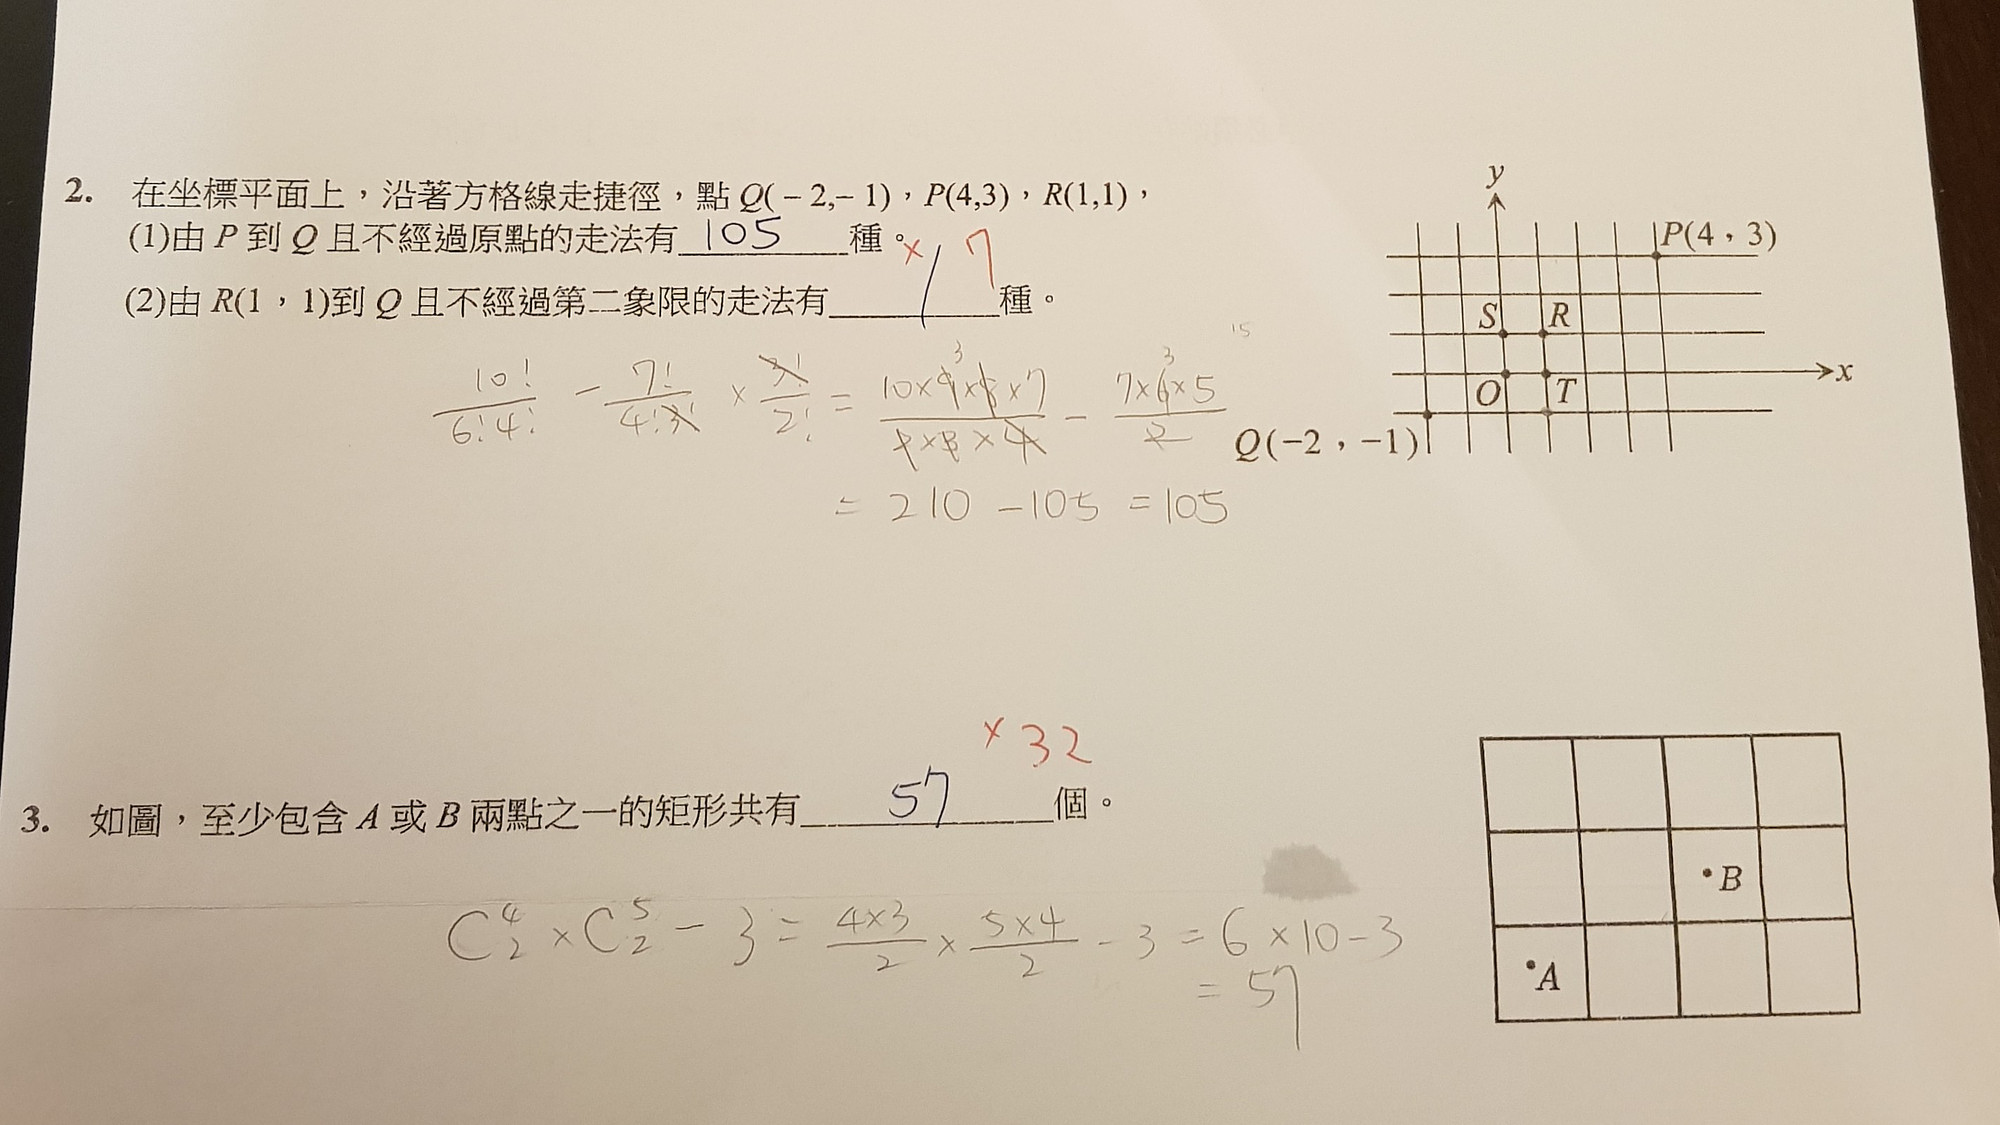 2. 在坐標平面上，沿著方格線走捷徑，點 Q(－2,－1)，P(4,3)，R(1,1)，
(1)由 P 到 Q 且不經過原點的走法有 105 種。
(2)由 R(1，1)到 Q 且不經過第二象限的走法有 / 種。
× 7
10!/6!4! － 7!/4!3! × 3!/2! = 10×9×8×7/1×3×4 － 7×6×5/2
3 3 15
= 210 － 105 = 105
y
P(4，3)
S R
x
O T
Q(−2，−1)
× 32
3. 如圖，至少包含 A 或 B 兩點之一的矩形共有 57 個。
C⁴₂ × C⁵₂ － 3 = 4×3/2 × 5×4/2 － 3 = 6×10－3
= 57
B
A